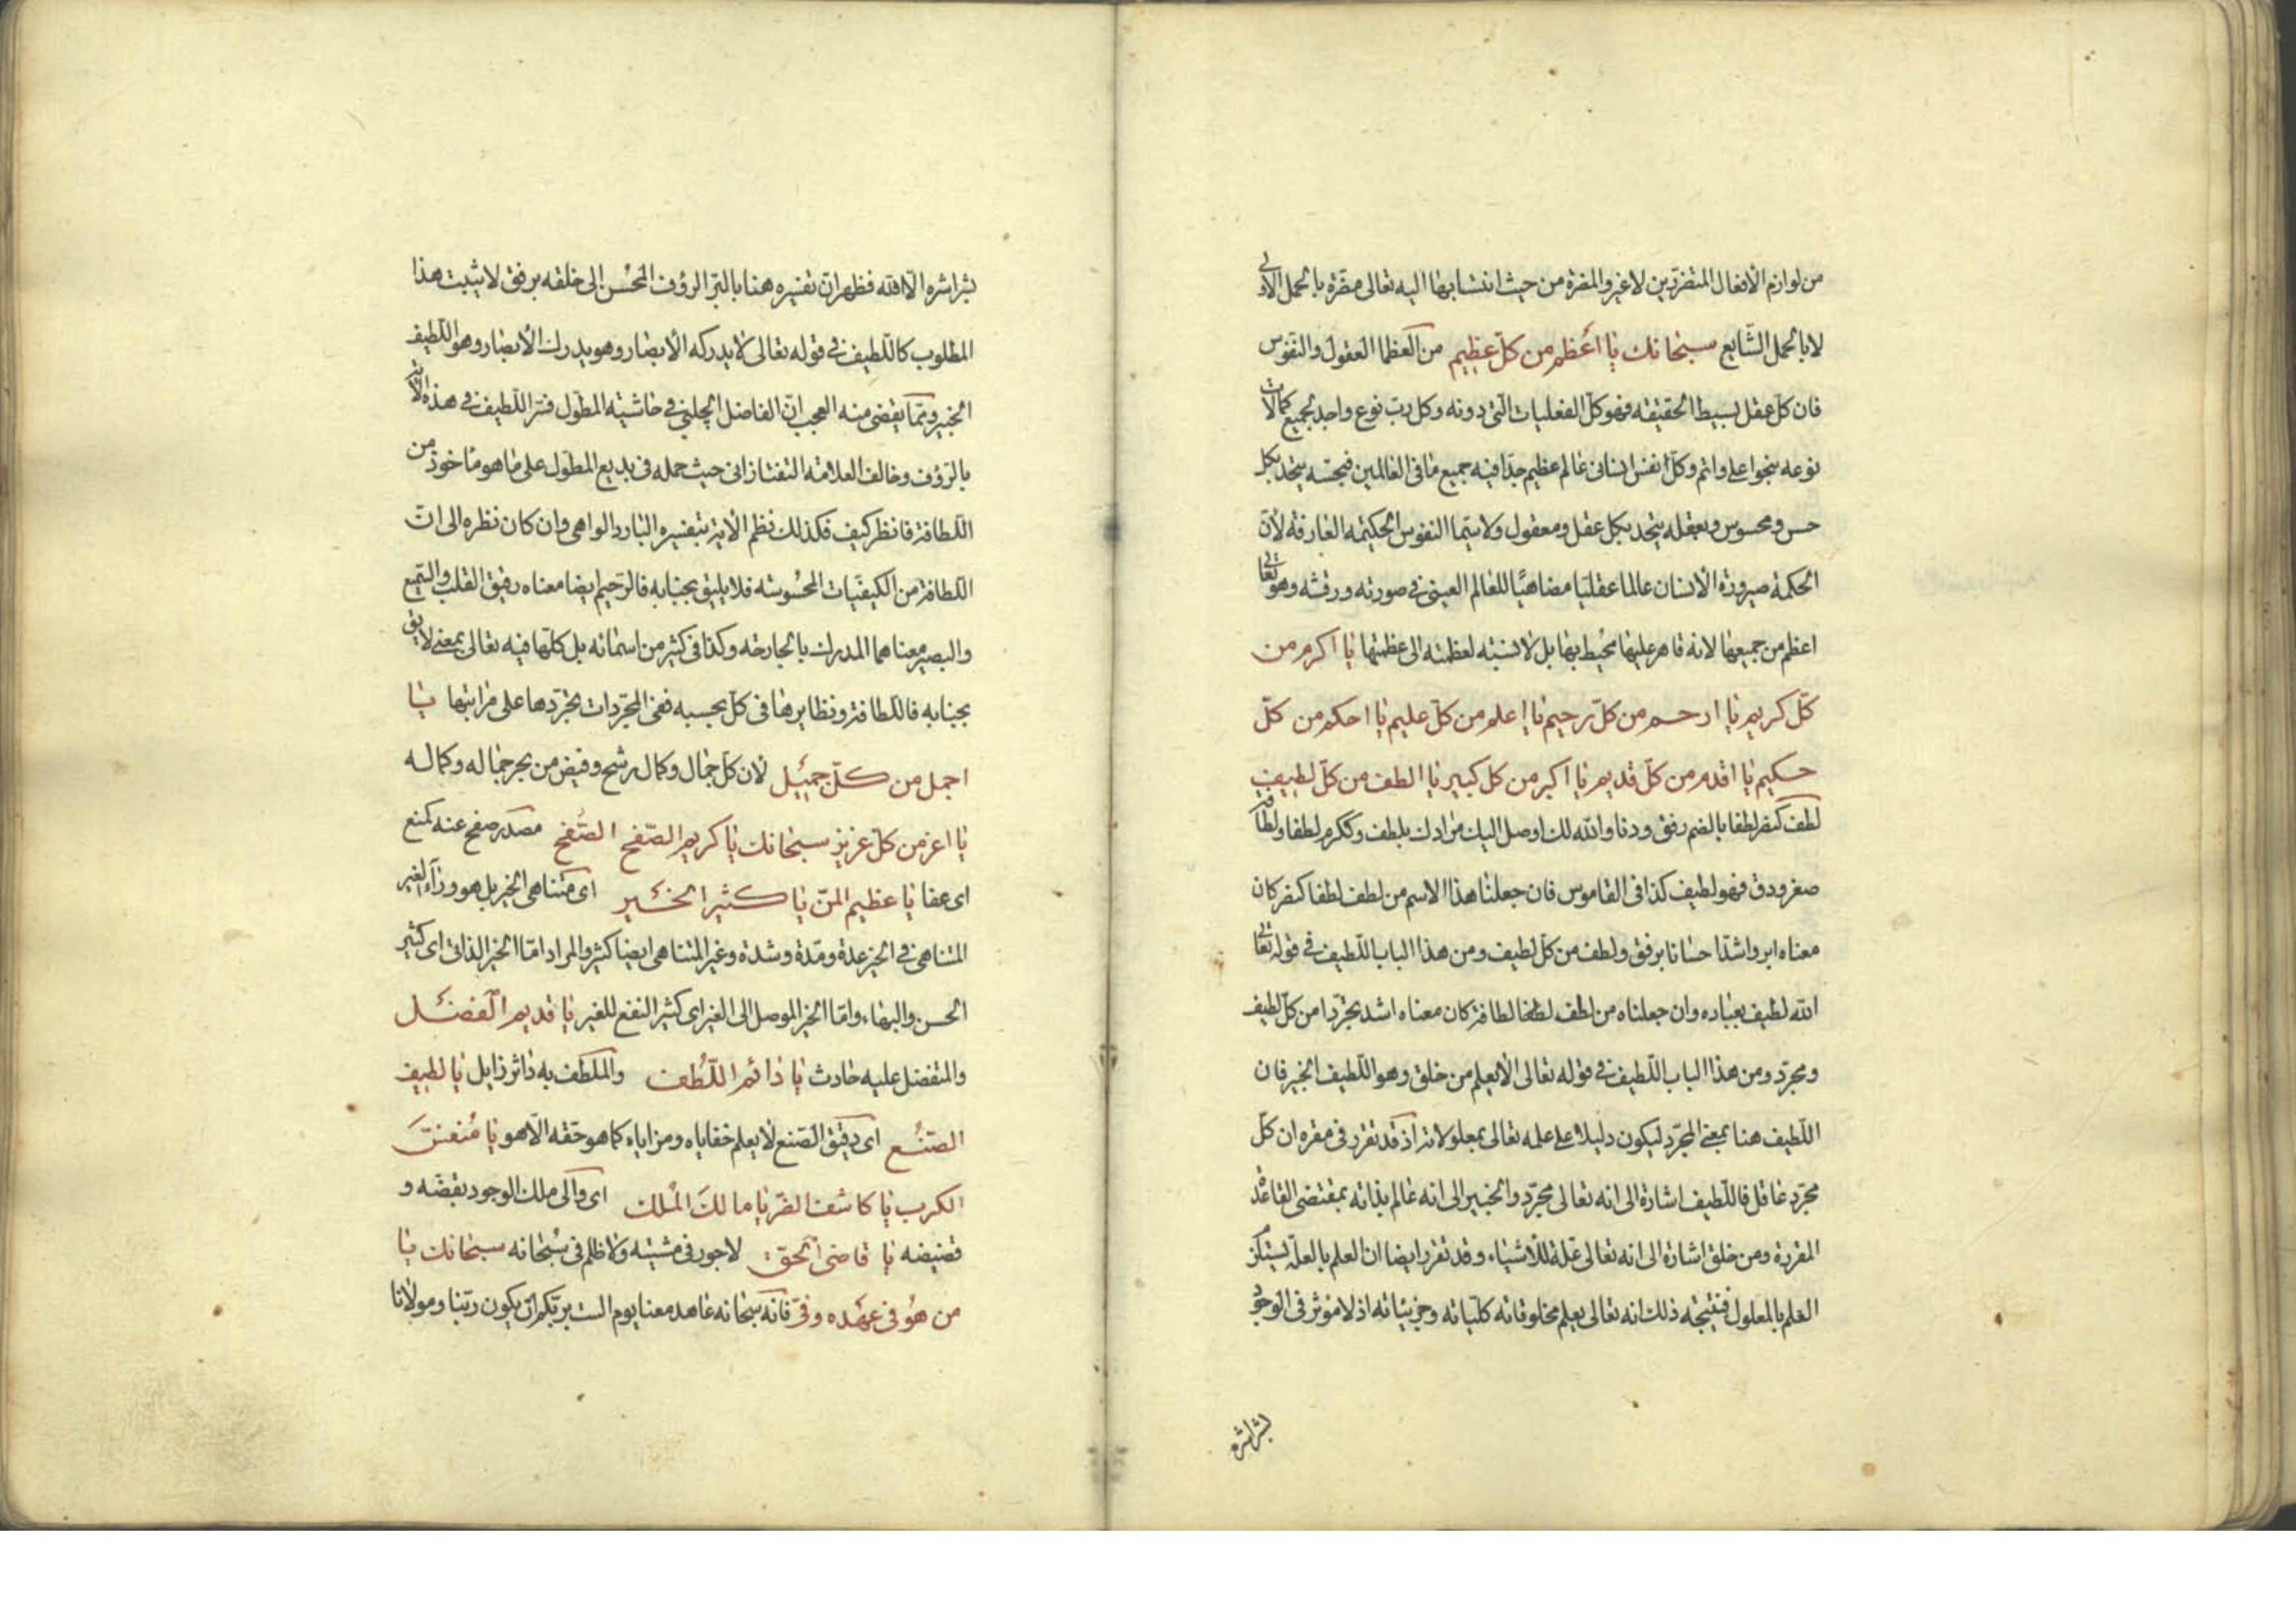 من لوازم الافعال المتفردين لا غير والمفرة من حيث انتسابها اليه تعالى مفرة بالحمل الاولى
لا بالحمل الشايع سبحانك يا اعظم من كل عظيم من العظما العقول والنفوس
فان كل عقل بسيط الحقيقه فهو كل الفعليات التى دونه وكل رب نوع واجد لجميع كمالات
نوعه بنحو اعلى واتم وكل نفس انسانى عالم عظيم جدا فيه جميع ما فى العالمين فبحسه يتحد بكل
حس ومحسوس وبعقله يتحد بكل عقل ومعقول ولا سيما النفوس الحكيمه العارفه لان
الحكمة صيرورة الانسان عالما عقليا مضاهيا للعالم العينى فى صورته ورقشه وهو تعالى
اعظم من جميعها لانه قاهر عليها محيط بها بل لا نسبته لعظمته الى عظمتها يا اكرم من
كل كريم يا ارحم من كل رحيم يا اعلم من كل عليم يا احكم من كل
حكيم يا اقدم من كل قديم يا اكبر من كل كبير يا الطف من كل لطيف
لطف كنصر لطفا بالضم رفق ودنا والله لك اوصل اليك مرادك بلطف وككرم لطفا ولطافة
صغر ودق فهو لطيف كذا فى القاموس فان جعلنا هذا الاسم من لطف لطفا كنصر كان
معناه ابر واشد احسانا برفق ولطف من كل لطيف ومن هذا الباب اللطيف فى قوله تعالى
الله لطيف بعباده وان جعلناه من لطف لطفا لطافة كان معناه اشد تجردا من كل لطيف
ومجرد ومن هذا الباب اللطيف فى قوله تعالى الا يعلم من خلق وهو اللطيف الخبير فان
اللطيف هنا بمعنى المجرد ليكون دليلا على علمه تعالى بمعلولاته اذ قد تقرر فى مقره ان كل
مجرد عاقل فاللطيف اشارة الى انه تعالى مجرد والخبير الى انه عالم بذاته بمقتضى القاعدة
المقررة ومن خلق اشارة الى انه تعالى علة للاشياء وقد تقرر ايضا ان العلم بالعلة يستلزم
العلم بالمعلول فنتيجة ذلك انه تعالى يعلم مخلوقاته كلياته وجزئياته اذ لا موثر فى الوجود
بشراشره
بشراشره الا الله فظهر ان تفسيره هنا بالبر الرؤف المحسن الى خلقه برفق لا يثبت هذا
المطلوب كاللطيف فى قوله تعالى لا يدركه الابصار وهو يدرك الابصار وهو اللطيف
الخبير ومما يقضى منه العجب ان الفاضل الچلپى فى حاشيته المطول فسر اللطيف فى هذه الآية
بالرؤف وخالف العلامة التفتازانى حيث حمله فى بديع المطول على ما هو ماخوذ من
اللطافة فانظر كيف فكذلك نظم الاية بتفسيره البارد الواهى وان كان نظره الى ان
اللطافة من الكيفيات المحسوسته فلا يليق بجنابه فالرحيم ايضا معناه رقيق القلب والسميع
والبصير معناهما المدرك بالجارحه وكذا فى كثير من اسمائه بل كلها فيه تعالى بمعنى لايق
بجنابه فاللطافة ونظايرها فى كل بحسبه ففى المجردات تجردها على مراتبها يا
اجمل من كل جميل لان كل جمال وكمال رشح وفيض من بحر جماله وكماله
يا اعز من كل عزيز سبحانك يا كريم الصفح الصفح مصدر صفح عنه كمنع
اى عفا يا عظيم المن يا كثير الخير اى متناهى الخير بل هو وراء الغير
المتناهى فى الخير عدة ومدة وشدة وغير المتناهى ايضا كثير والمراد اما الخير الذاتى اى كثير
الحسن والبهاء واما الخير الموصل الى الغير اى كثير النفع للغير يا قديم الفضل
والمتفضل عليه حادث يا دائم اللطف والملطف به داثر زايل يا لطيف
الصنع اى دقيق الصنع لا يعلم خفاياه ومزاياه كما هو حقه الا هو يا منفس
الكرب يا كاشف الضر يا مالك الملك اى والى ملك الوجود بقضه و
قضيضه يا قاضى الحق لا جور فى مشيته ولا ظلم فى سبحانه سبحانك يا
من هو فى عهده وفى فانه سبحانه عاهد معنا يوم الست بربكم ان يكون ربنا ومولانا